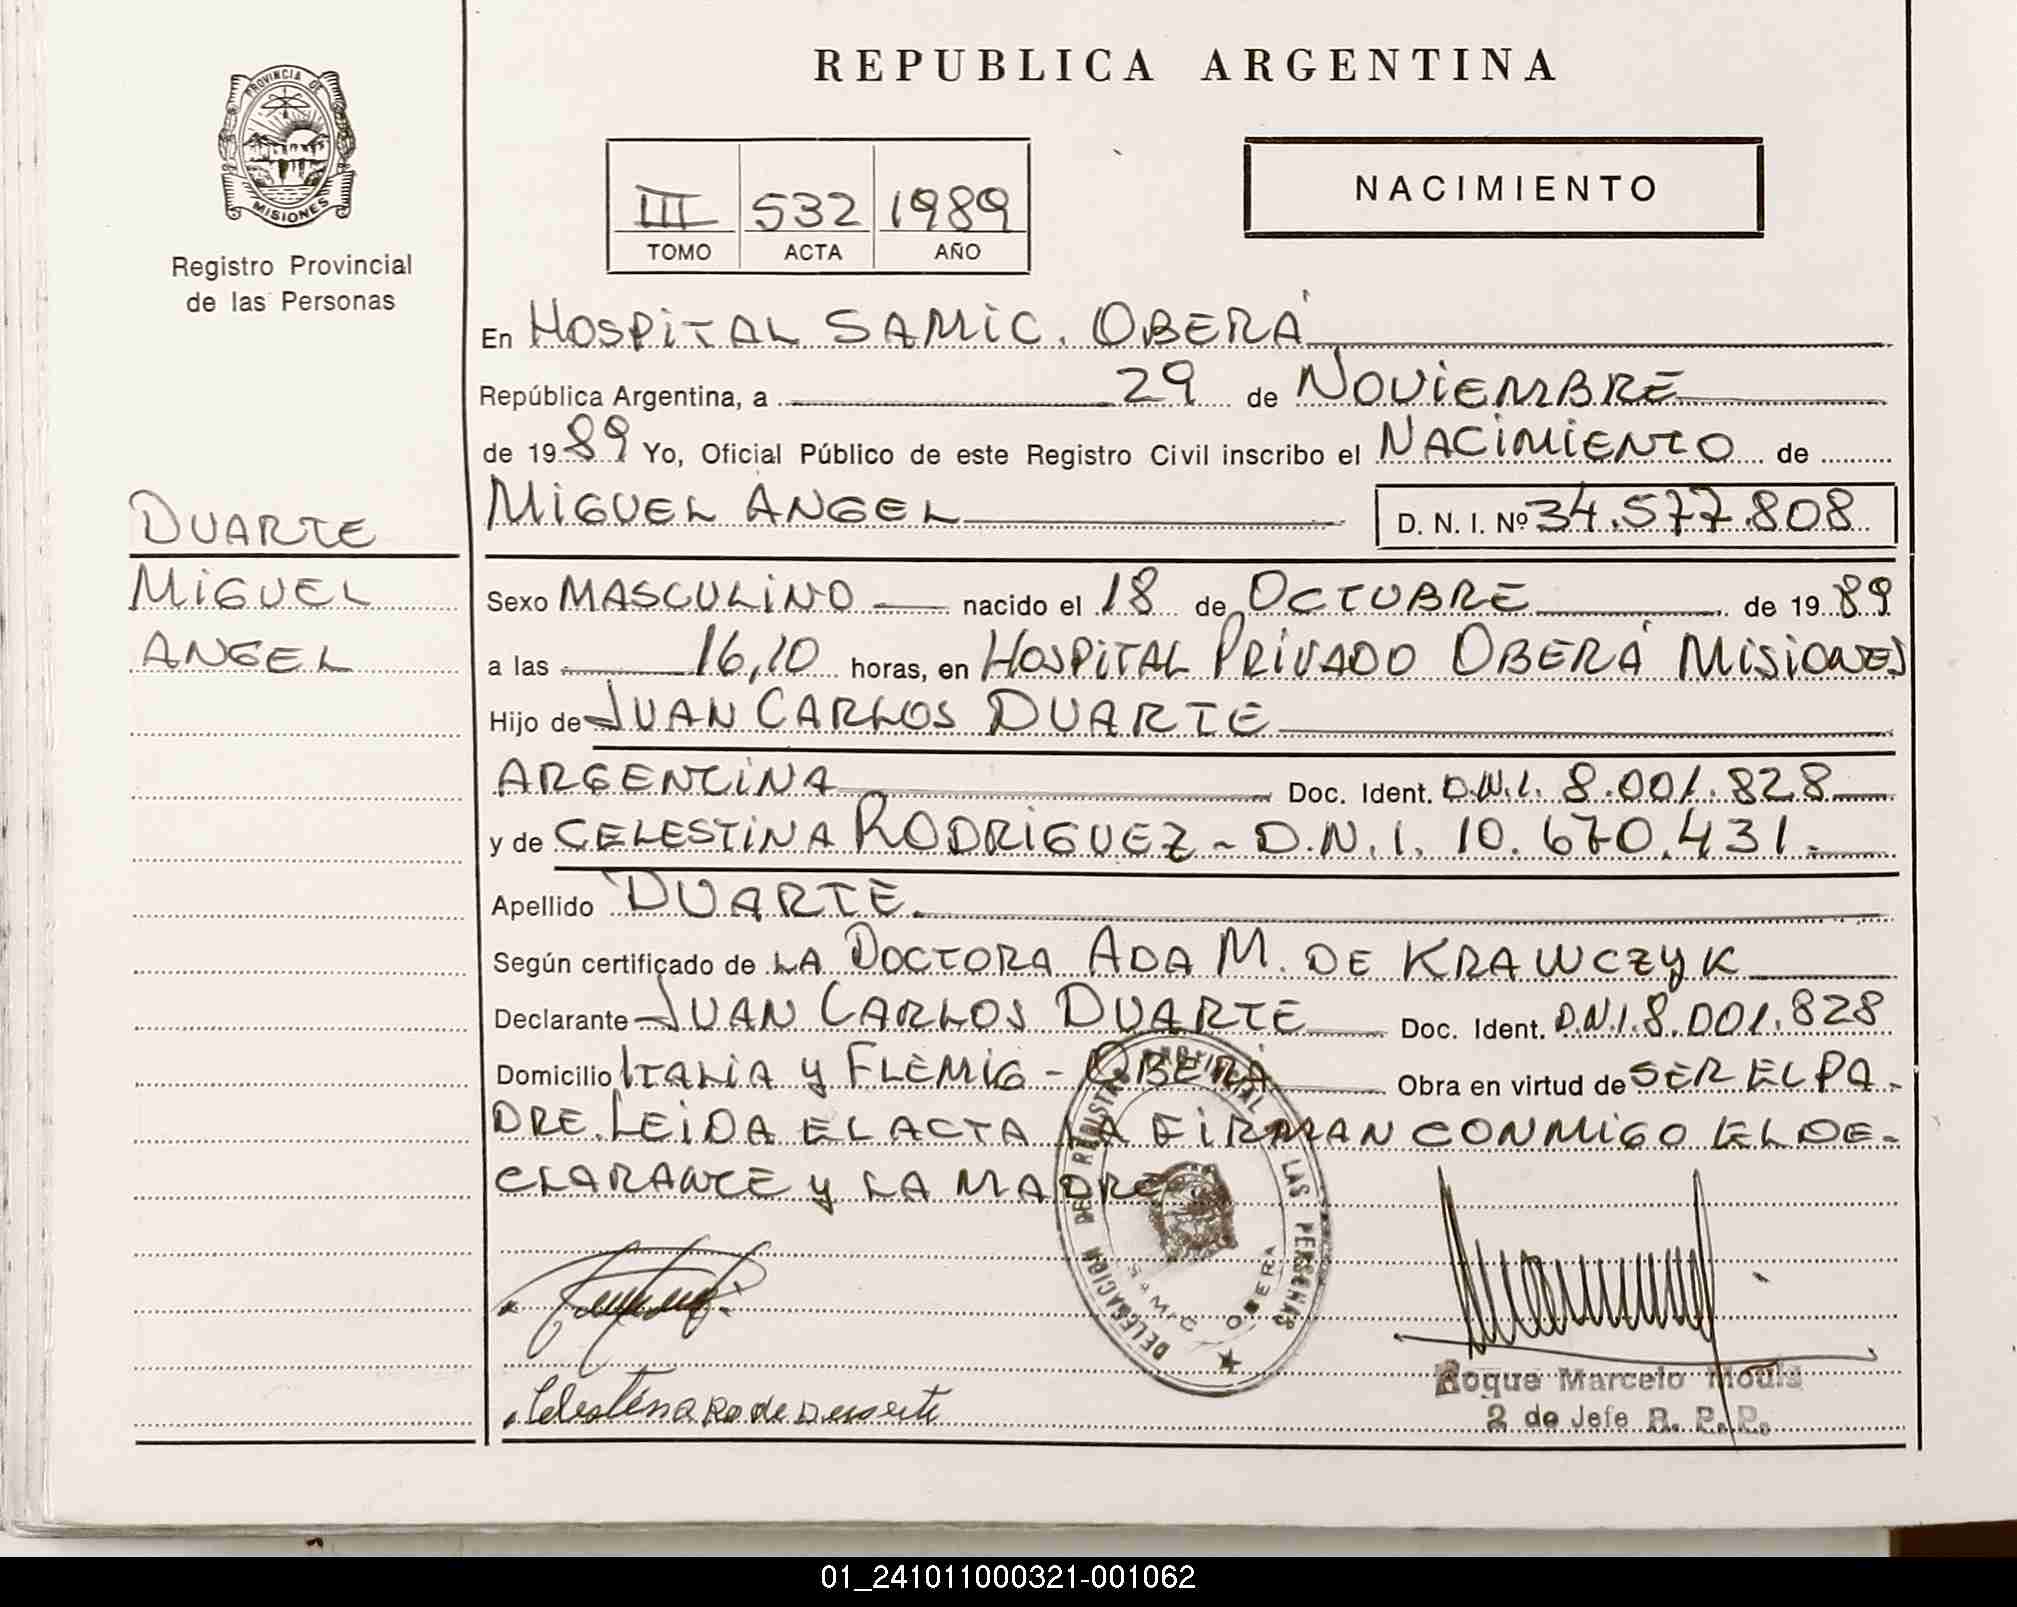 REPUBLICA ARGENTINA
PROVINCIA DE
MISIONES
Registro Provincial
de las Personas
NACIMIENTO
III 532 1989
TOMO ACTA AÑO
En HOSPITAL SAMIC. OBERÁ
República Argentina, a 29 de NOVIEMBRE
de 1989 Yo, Oficial Público de este Registro Civil inscribo el NACIMIENTO de
MIGUEL ANGEL D. N. I. Nº 34.577.808
DUARTE
MIGUEL
ANGEL
Sexo MASCULINO nacido el 18 de OCTUBRE de 1989
a las 16,10 horas, en HOSPITAL PRIVADO OBERÁ MISIONES
Hijo de JUAN CARLOS DUARTE
ARGENTINA Doc. Ident. D.N.I. 8.001.828
y de CELESTINA RODRIGUEZ - D.N.I. 10.670.431.-
Apellido DUARTE.
Según certificado de LA DOCTORA ADA M. DE KRAWCZYK
Declarante JUAN CARLOS DUARTE Doc. Ident. D.N.I. 8.001.828
Domicilio ITALIA Y FLEMIG - OBERÁ Obra en virtud de SER EL PA-
DRE. LEIDA EL ACTA LA FIRMAN CONMIGO EL DE-
CLARANTE Y LA MADRE
DELEGACION DEL REGISTRO PROVINCIAL DE LAS PERSONAS
SAMIC OBERA
Celestina Ro de Duarte
Roque Marcelo Mouls
2 do Jefe R. P. P.
01_241011000321-001062